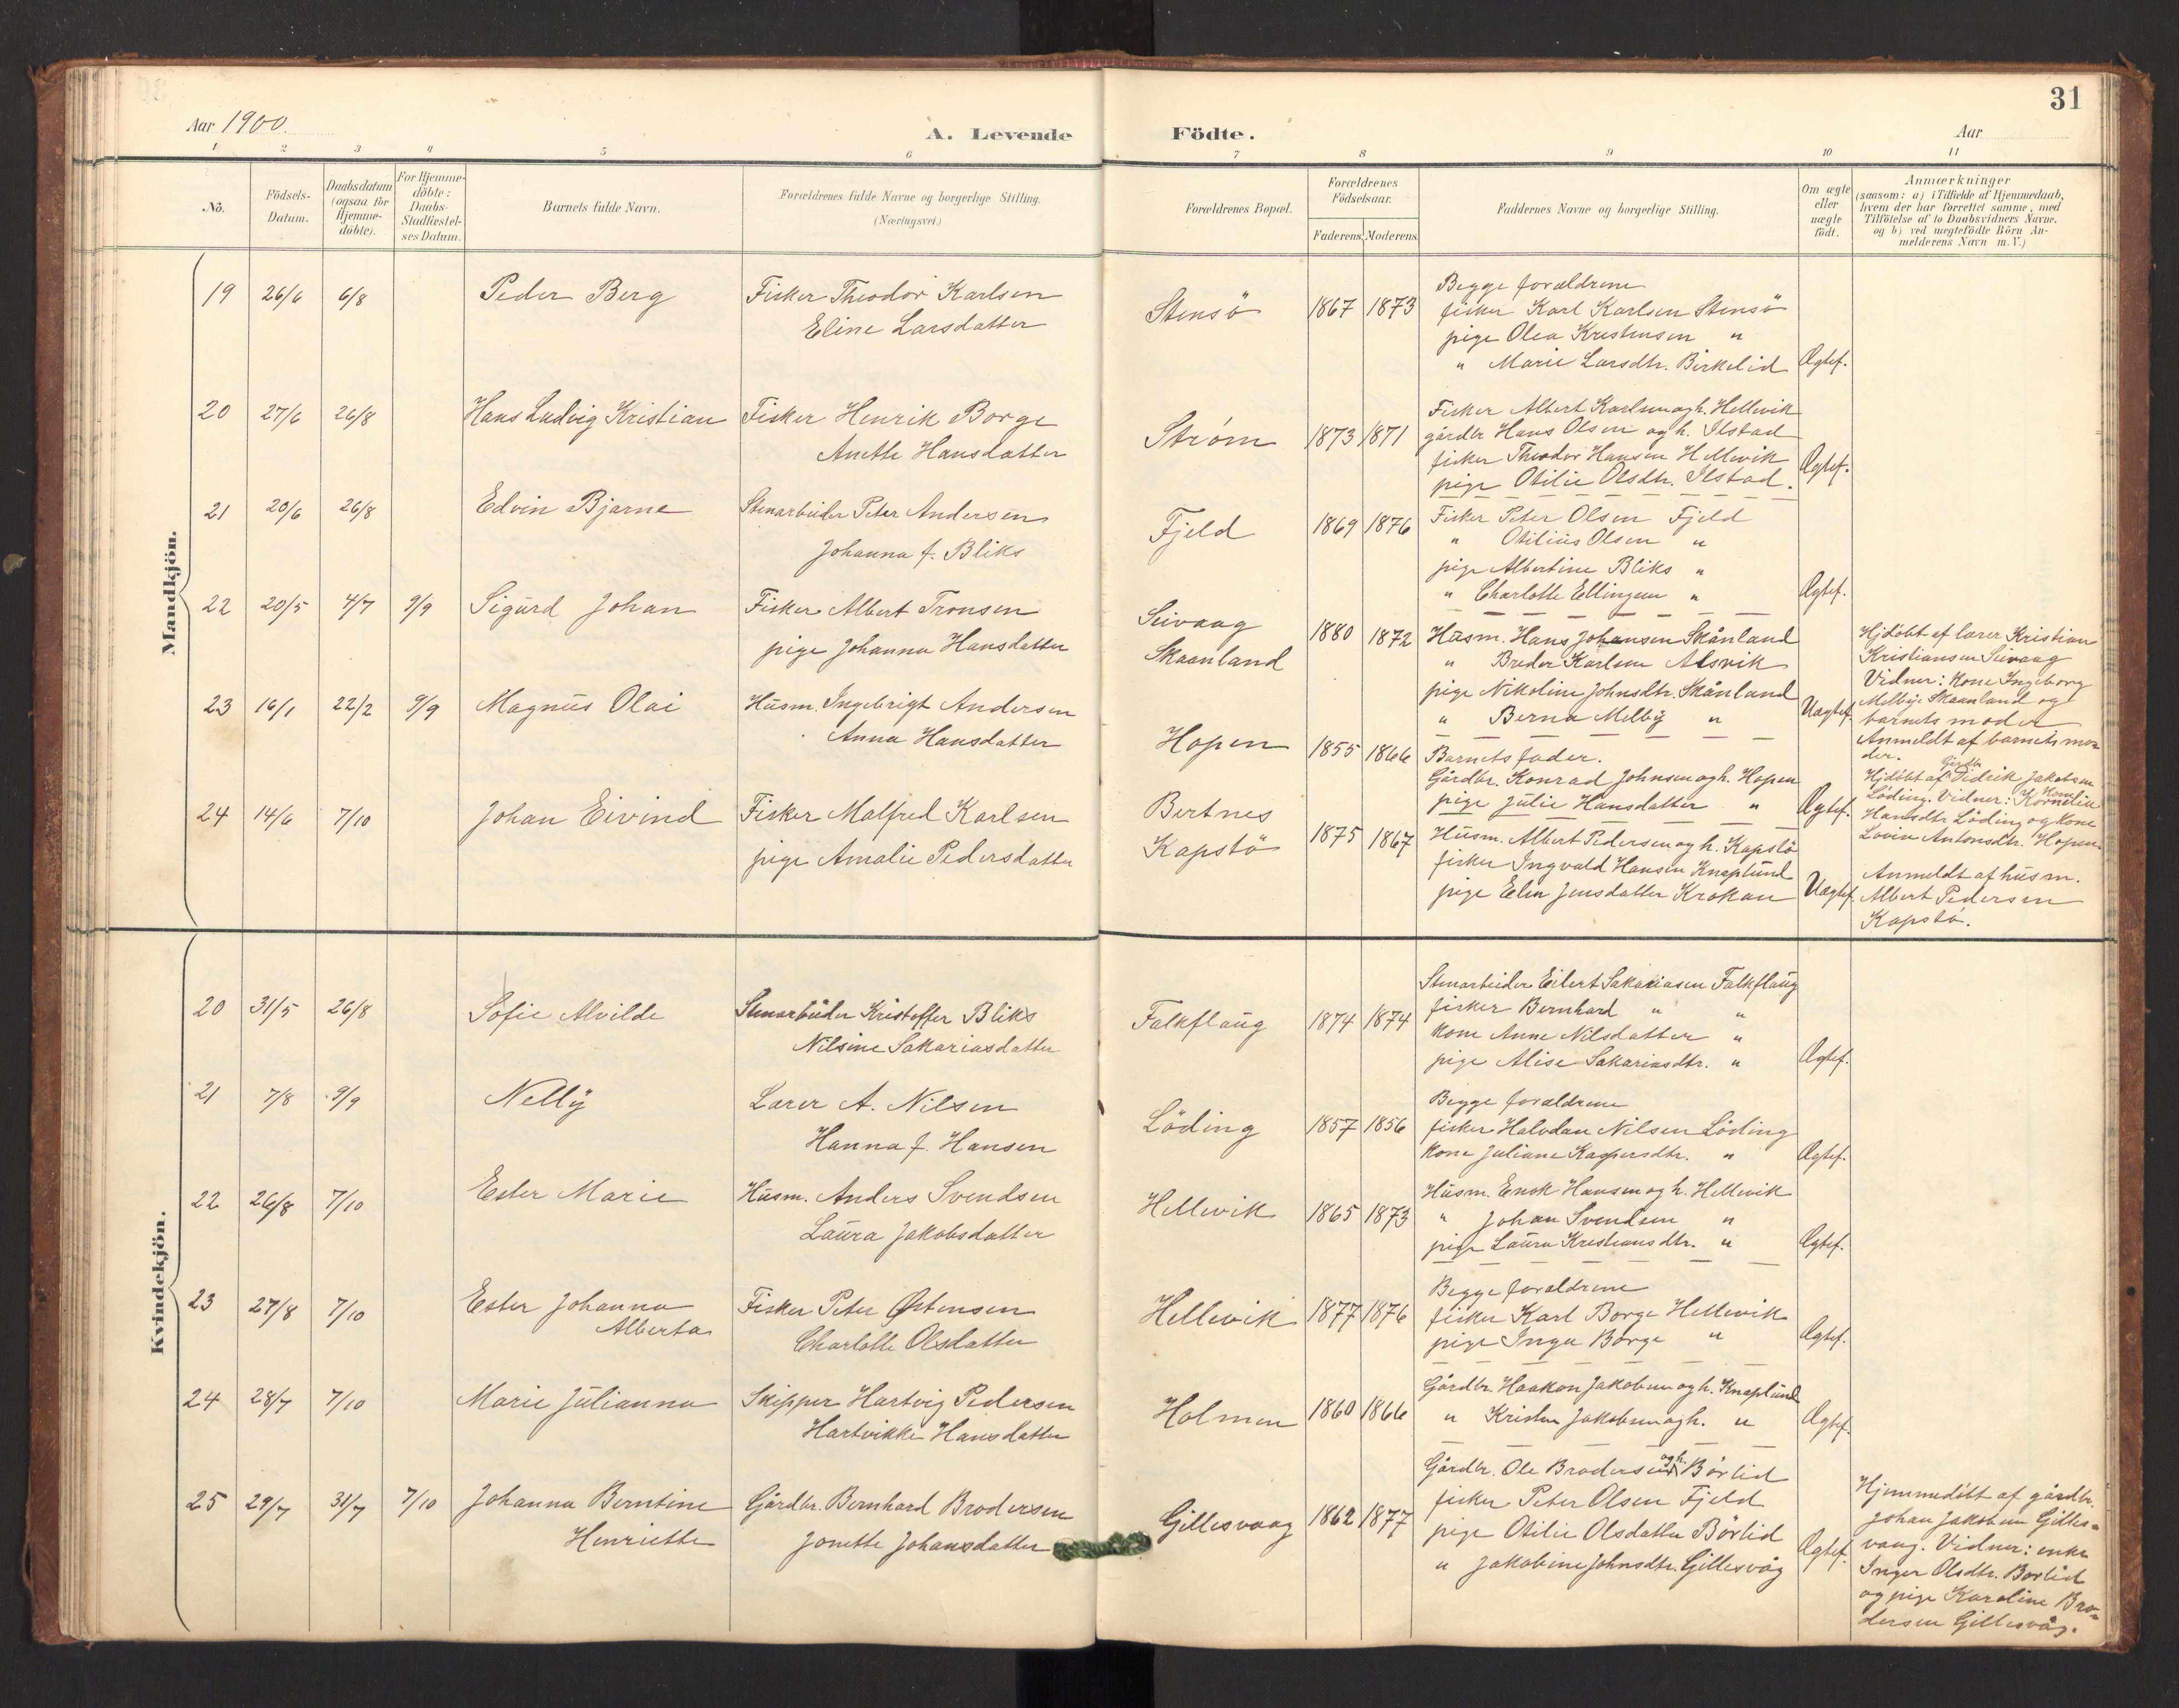 31
Aar 1900.
A. Levende Födte.
Aar
1 2 3 4 5 6 7 8 9 10 11
No.
Födsels-Datum.
Daabsdatum (ogsaa for Hjemme-döbte).
For Hjemme-döbte: Daabs-Stadfæstel-ses Datum.
Barnets fulde Navn.
Forældrenes fulde Navne og borgerlige Stilling.
(Næringsvei.)
Forældrenes Bopæl.
Forældrenes Födselsaar.
Faderens. Moderens.
Faddernes Navne og borgerlige Stilling.
Om ægte eller uægte födt.
Anmærkninger
(saasom: a) i Tilfælde af Hjemmedaab,
hvem der har forrettet samme, med
Tilföielse af to Daabsvidners Navne.
og b) ved uægtefödte Börn An-
melderens Navn m. V.)
Mandkjön.
19 26/6 6/8 Peder Berg
Fisker Theodor Karlsen
Eline Larsdatter
Stensö 1867 1873
Begge forældrene
fisker Karl Karlsen Stensö
pige Olea Kristensen "
" Marie Larsdtr. Birkelid
Ægtef.
20 27/6 26/8 Hans Ludvig Kristian
Fisker Henrik Borge
Anette Hansdatter
Strøm 1873 1871
Fisker Albert Karlsen og h. Hellevik
gårdbr Hans Olsen og h. Ilstad
fisker Theodor Hansen Hellevik
pige Otilie Olsdtr. Ilstad.
Ægtef.
21 20/6 26/8 Edvin Bjarne
Stenarbeider Peter Andersen
Johanna f. Bliks
Fjeld 1869 1876
Fisker Peter Olsen Fjeld
" Otilius Olsen "
pige Albertine Bliks "
" Charlotte Ellingsen "
Ægtef.
22 20/5 4/7 9/9 Sigurd Johan
Fisker Albert Tronsen
pige Johanna Hansdatter
Seivaag
Skaanland
1880 1872
Husm. Hans Johansen Skånland
" Breder Karlsen Alsvik
pige Nikoline Johnsdtr. Skånland
" Berna Melby "
Uægtef.
Hjdöbt af lærer Kristian
Kristiansen Seivaag
Vidner: Kone Ingeborg
Melbye Skaanland og
barnets moder
Anmeldt af barnets mo-
der.
23 16/1 22/2 9/9 Magnus Olai
Husm. Ingebrigt Andersen
Anna Hansdatter
Hopen 1855 1866
Barnets fader.
Gårdbr. Konrad Johnsen og h. Hopen
pige Julie Hansdatter "
Ægtef.
Hjdöbt af Gårdbr Didrik Jakobsen
Löding. Vidner: Kone Kornelia
Hansdtr Löding og Kone
Lovise Antonsdtr. Hopen.
24 14/6 7/10 Johan Eivind
Fisker Malfred Karlsen
pige Amalie Pedersdatter
Bertnes
Kapstö
1875 1867
Husm. Albert Pedersen og h. Kapstö
fisker Ingvald Hansen Knaplund
pige Elen Jensdatter Krokan
Uægtef.
Anmeldt af husm.
Albert Pedersen
Kapstö.
Kvindekjön.
20 31/5 26/8 Sofie Alvilde
Stenarbeider Kristoffer Bliks
Nilsine Sakariasdatter
Falkflaug 1874 1874
Stenarbeider Eilert Sakariasen Falkflaug
fisker Bernhard " "
Kone Anne Nilsdatter "
pige Alise Sakariasdtr. "
Ægtef.
21 7/8 9/9 Nelly
Lærer A. Nilsen
Hanna f. Hansen
Löding 1857 1856
Begge forældrene
fisker Halvdan Nilsen Löding
Kone Juliane Kaspersdtr. "
Ægtef.
22 26/8 7/10 Ester Marie
Husm. Anders Svendsen
Laura Jakobsdatter
Hellevik 1865 1873
Husm. Enok Hansen og h. Hellevik
" Johan Svendsen "
pige Laura Kristiansdtr. "
Ægtef.
23 27/8 7/10 Ester Johanna
Alberta
Fisker Peter Østensen
Charlotte Olsdatter
Hellevik 1877 1876
Begge forældrene
fisker Karl Borge Hellevik
pige Inga Borge "
Ægtef.
24 28/7 7/10 Marie Julianna
Skipper Hartvig Pedersen
Hartvikke Hansdatter
Holmen 1860 1866
Gårdbr. Haakon Jakobsen og h. Knaplund
" Kristen Jakobsen og h. "
Ægtef.
25 29/7 31/7 7/10 Johanna Berntine
Henriette
Gårdbr. Bernhard Brodersen
Jonette Johansdatter
Gillesvaag 1862 1877
Gårdbr. Ole Brodersen og h. Börlid
fisker Peter Olsen Fjeld
pige Otilie Olsdatter Börlid
" Jakobine Johnsdtr. Gillesvåg
Ægtef.
Hjemmedöbt af gårdbr.
Johan Jakobsen Gilles-
vaag. Vidner: enke
Inger Olsdtr. Börlid
og pige Karoline Bro-
dersen Gillesvåg.